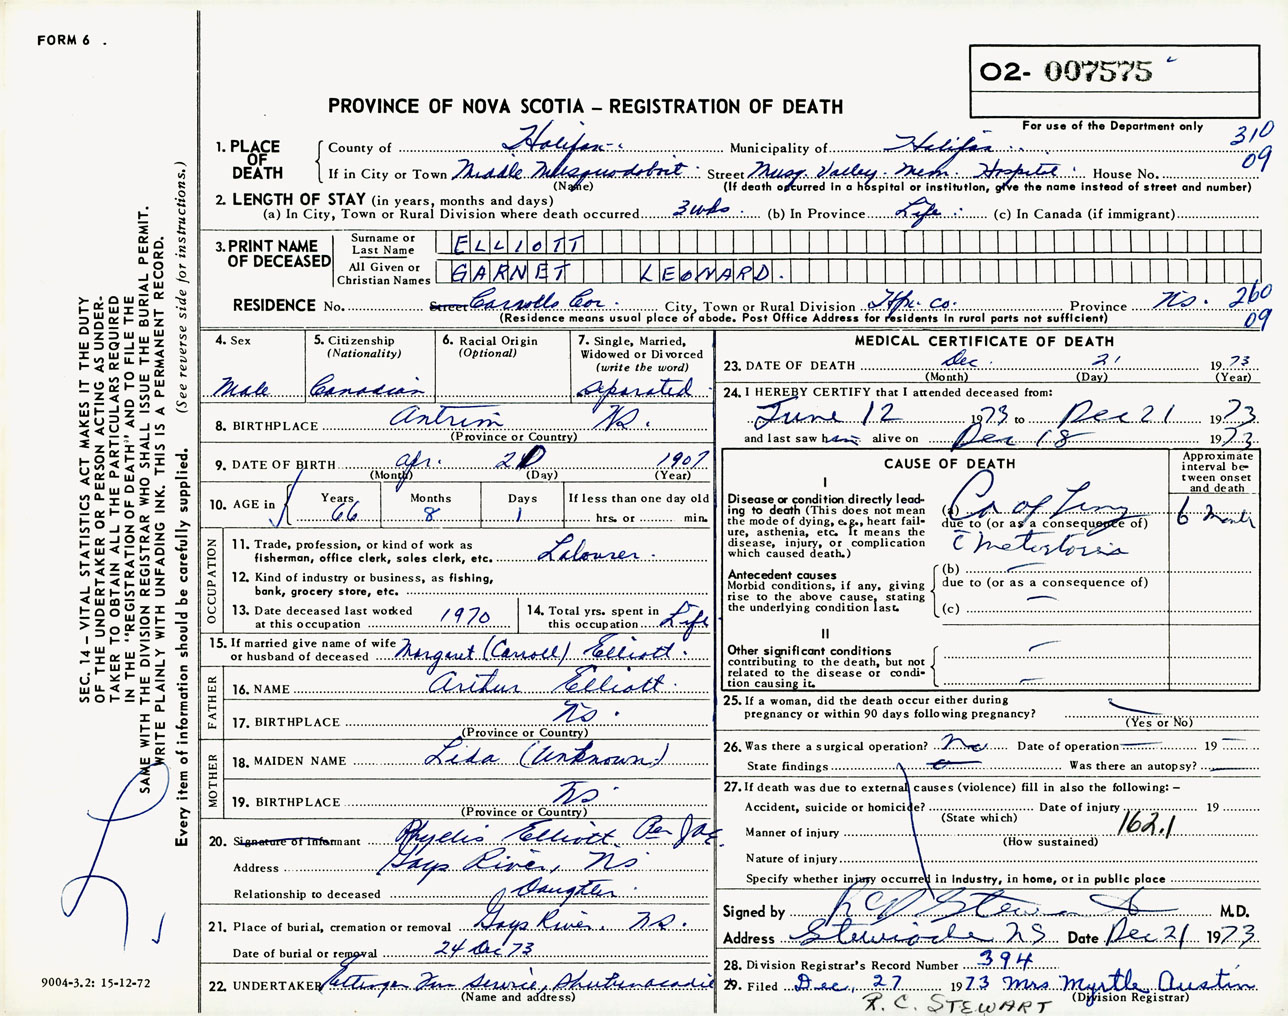 FORM 6 .
O2- 007575
PROVINCE OF NOVA SCOTIA – REGISTRATION OF DEATH
For use of the Department only
310
09
1. PLACE OF DEATH
County of Halifax Municipality of Halifax
If in City or Town Middle Musquodoboit Street Musq. Valley Mem. Hospital House No.
(Name) (If death occurred in a hospital or institution, give the name instead of street and number)
2. LENGTH OF STAY (in years, months and days)
(a) In City, Town or Rural Division where death occurred 3 wks. (b) In Province Life (c) In Canada (if immigrant)
3. PRINT NAME OF DECEASED
Surname or Last Name ELLIOTT
All Given or Christian Names GARNET LEONARD.
RESIDENCE No. Street Carrolls Cor. City, Town or Rural Division Hfx. co. Province N.S. 260
(Residence means usual place of abode. Post Office Address for residents in rural parts not sufficient) 09
4. Sex Male
5. Citizenship (Nationality) Canadian
6. Racial Origin (Optional)
7. Single, Married, Widowed or Divorced (write the word) Separated
8. BIRTHPLACE Antrim N.S.
(Province or Country)
9. DATE OF BIRTH Apr. 20 1907
(Month) (Day) (Year)
10. AGE in Years 66 Months 8 Days 1 If less than one day old hrs. or min.
OCCUPATION
11. Trade, profession, or kind of work as fisherman, office clerk, sales clerk, etc. Labourer.
12. Kind of industry or business, as fishing, bank, grocery store, etc.
13. Date deceased last worked at this occupation 1970
14. Total yrs. spent in this occupation Life
15. If married give name of wife or husband of deceased Margaret (Carroll) Elliott.
FATHER
16. NAME Arthur Elliott.
17. BIRTHPLACE NS.
(Province or Country)
MOTHER
18. MAIDEN NAME Lida (Unknown)
19. BIRTHPLACE NS
(Province or Country)
20. Signature of Informant Phyllis Elliott Per
Address Gays River, NS
Relationship to deceased Daughter
21. Place of burial, cremation or removal Gays River, NS.
Date of burial or removal 24 Dec 73
22. UNDERTAKER Ettinger Fun Service, Shubenacadie
(Name and address)
MEDICAL CERTIFICATE OF DEATH
23. DATE OF DEATH Dec. 21 1973
(Month) (Day) (Year)
24. I HEREBY CERTIFY that I attended deceased from:
June 12 1973 to Dec 21 1973
and last saw him alive on Dec 18 1973
CAUSE OF DEATH
Approximate interval between onset and death
I
Disease or condition directly leading to death (This does not mean the mode of dying, e.g., heart failure, asthenia, etc. It means the disease, injury, or complication which caused death.)
(a) Ca of Lung 6 Month
due to (or as a consequence of)
c̄ Metastasis
Antecedent causes
Morbid conditions, if any, giving rise to the above cause, stating the underlying condition last.
(b) —
due to (or as a consequence of)
—
(c)
II
Other significant conditions contributing to the death, but not related to the disease or condition causing it.
25. If a woman, did the death occur either during pregnancy or within 90 days following pregnancy?
(Yes or No)
26. Was there a surgical operation? No Date of operation — 19 —
State findings Was there an autopsy? —
27. If death was due to external causes (violence) fill in also the following: –
Accident, suicide or homicide? Date of injury 19
(State which)
Manner of injury 162.1
(How sustained)
Nature of injury
Specify whether injury occurred in industry, in home, or in public place
Signed by R C Stewart M.D.
Address Stewiacke NS Date Dec 21 1973
28. Division Registrar's Record Number 394
29. Filed Dec, 27 1973 Mrs Myrtle Austin
(Division Registrar)
R. C. STEWART
SEC. 14 – VITAL STATISTICS ACT MAKES IT THE DUTY
OF THE UNDERTAKER OR PERSON ACTING AS UNDER-
TAKER TO OBTAIN ALL THE PARTICULARS REQUIRED
IN THE "REGISTRATION OF DEATH" AND TO FILE THE
SAME WITH THE DIVISION REGISTRAR WHO SHALL ISSUE THE BURIAL PERMIT.
WRITE PLAINLY WITH UNFADING INK. THIS IS A PERMANENT RECORD.
Every item of information should be carefully supplied. (See reverse side for instructions.)
9004-3.2: 15-12-72